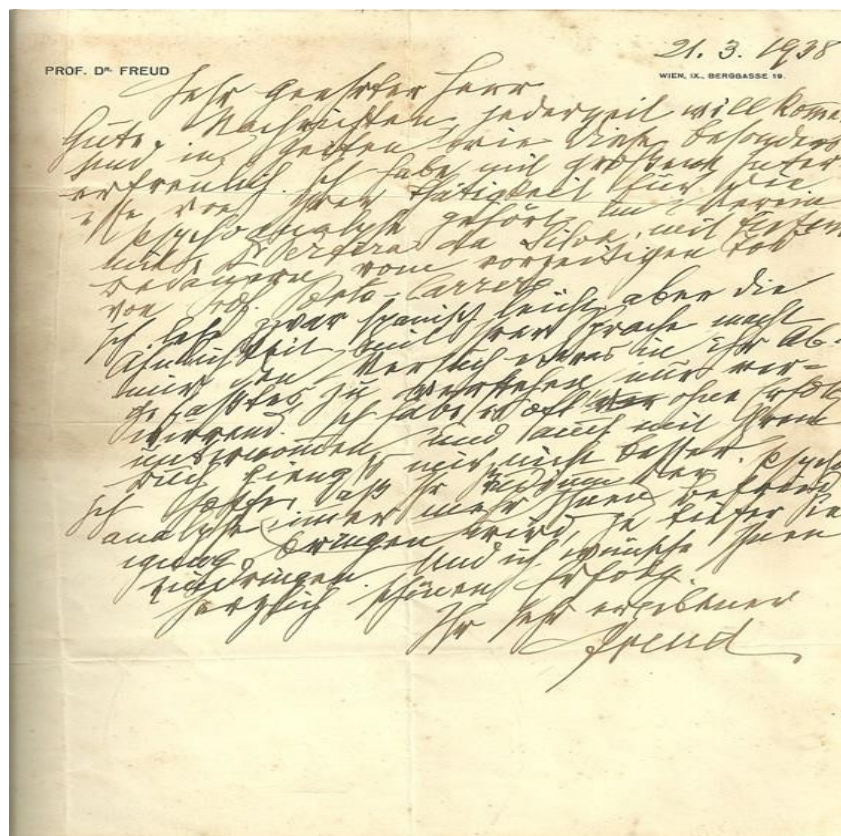 21. 3. 1938
PROF. DR. FREUD
WIEN, IX., BERGGASSE 19.
Sehr geehrter Herr
Gute Nachrichten jederzeit willkomm
sind in Zeiten wie diese besonders
erfreulich. Ich habe mit größtem Inter
esse von Ihrer Thätigkeit für die
Psychoanalyse gehört im Verein
mit Dr Pereira da Silva, mit
Bedauern vom vorzeitigen Tod
von Prof. Porto-Carrero
Ich lese zwar spanisch leicht, aber die
Ähnlichkeit mit Ihrer Sprache macht
mir den Versuch etwas in Ihr Ab-
gefasstes zu verstehen nur ver-
wirrend. Ich habe es oft ohne Erfolg
unternommen und auch mit Ihrem
Buch gieng's mir nicht besser.
Ich hoffe, daß Ihr Studium der Psycho
analyse immer mehr Ihnen Befried
igung bringen wird, je tiefer Sie
eindringen. Und ich wünsche Ihnen
herzlich schönen Erfolg.
Ihr sehr ergebener
Freud